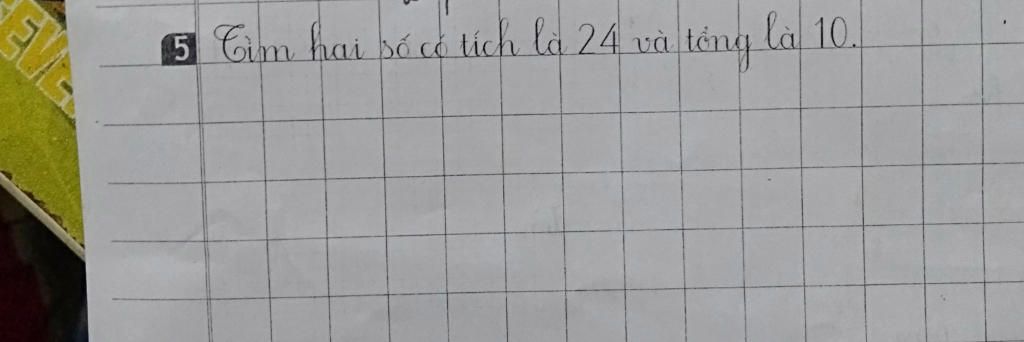 5 Tìm hai số có tích là 24 và tổng là 10.